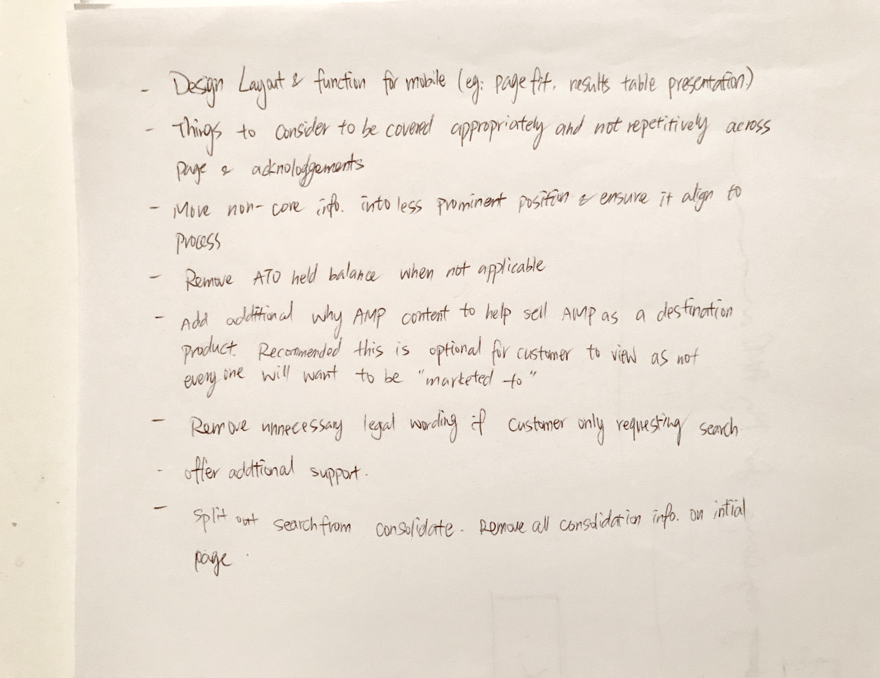 - Design Layout & function for mobile (eg: page fit, results table presentation)
- Things to consider to be covered appropriately and not repetitively across
page & acknologgements
- Move non-core info. into less prominent position & ensure it align to
process
- Remove ATO held balance when not applicable
- Add additional why AMP content to help sell AMP as a destination
product. Recommended this is optional for customer to view as not
every one will want to be "marketed to"
- Remove unnecessary legal wording if customer only requesting search
- offer addtional support.
- Split out search from consolidate. Remove all consolidation info. on intial
page.